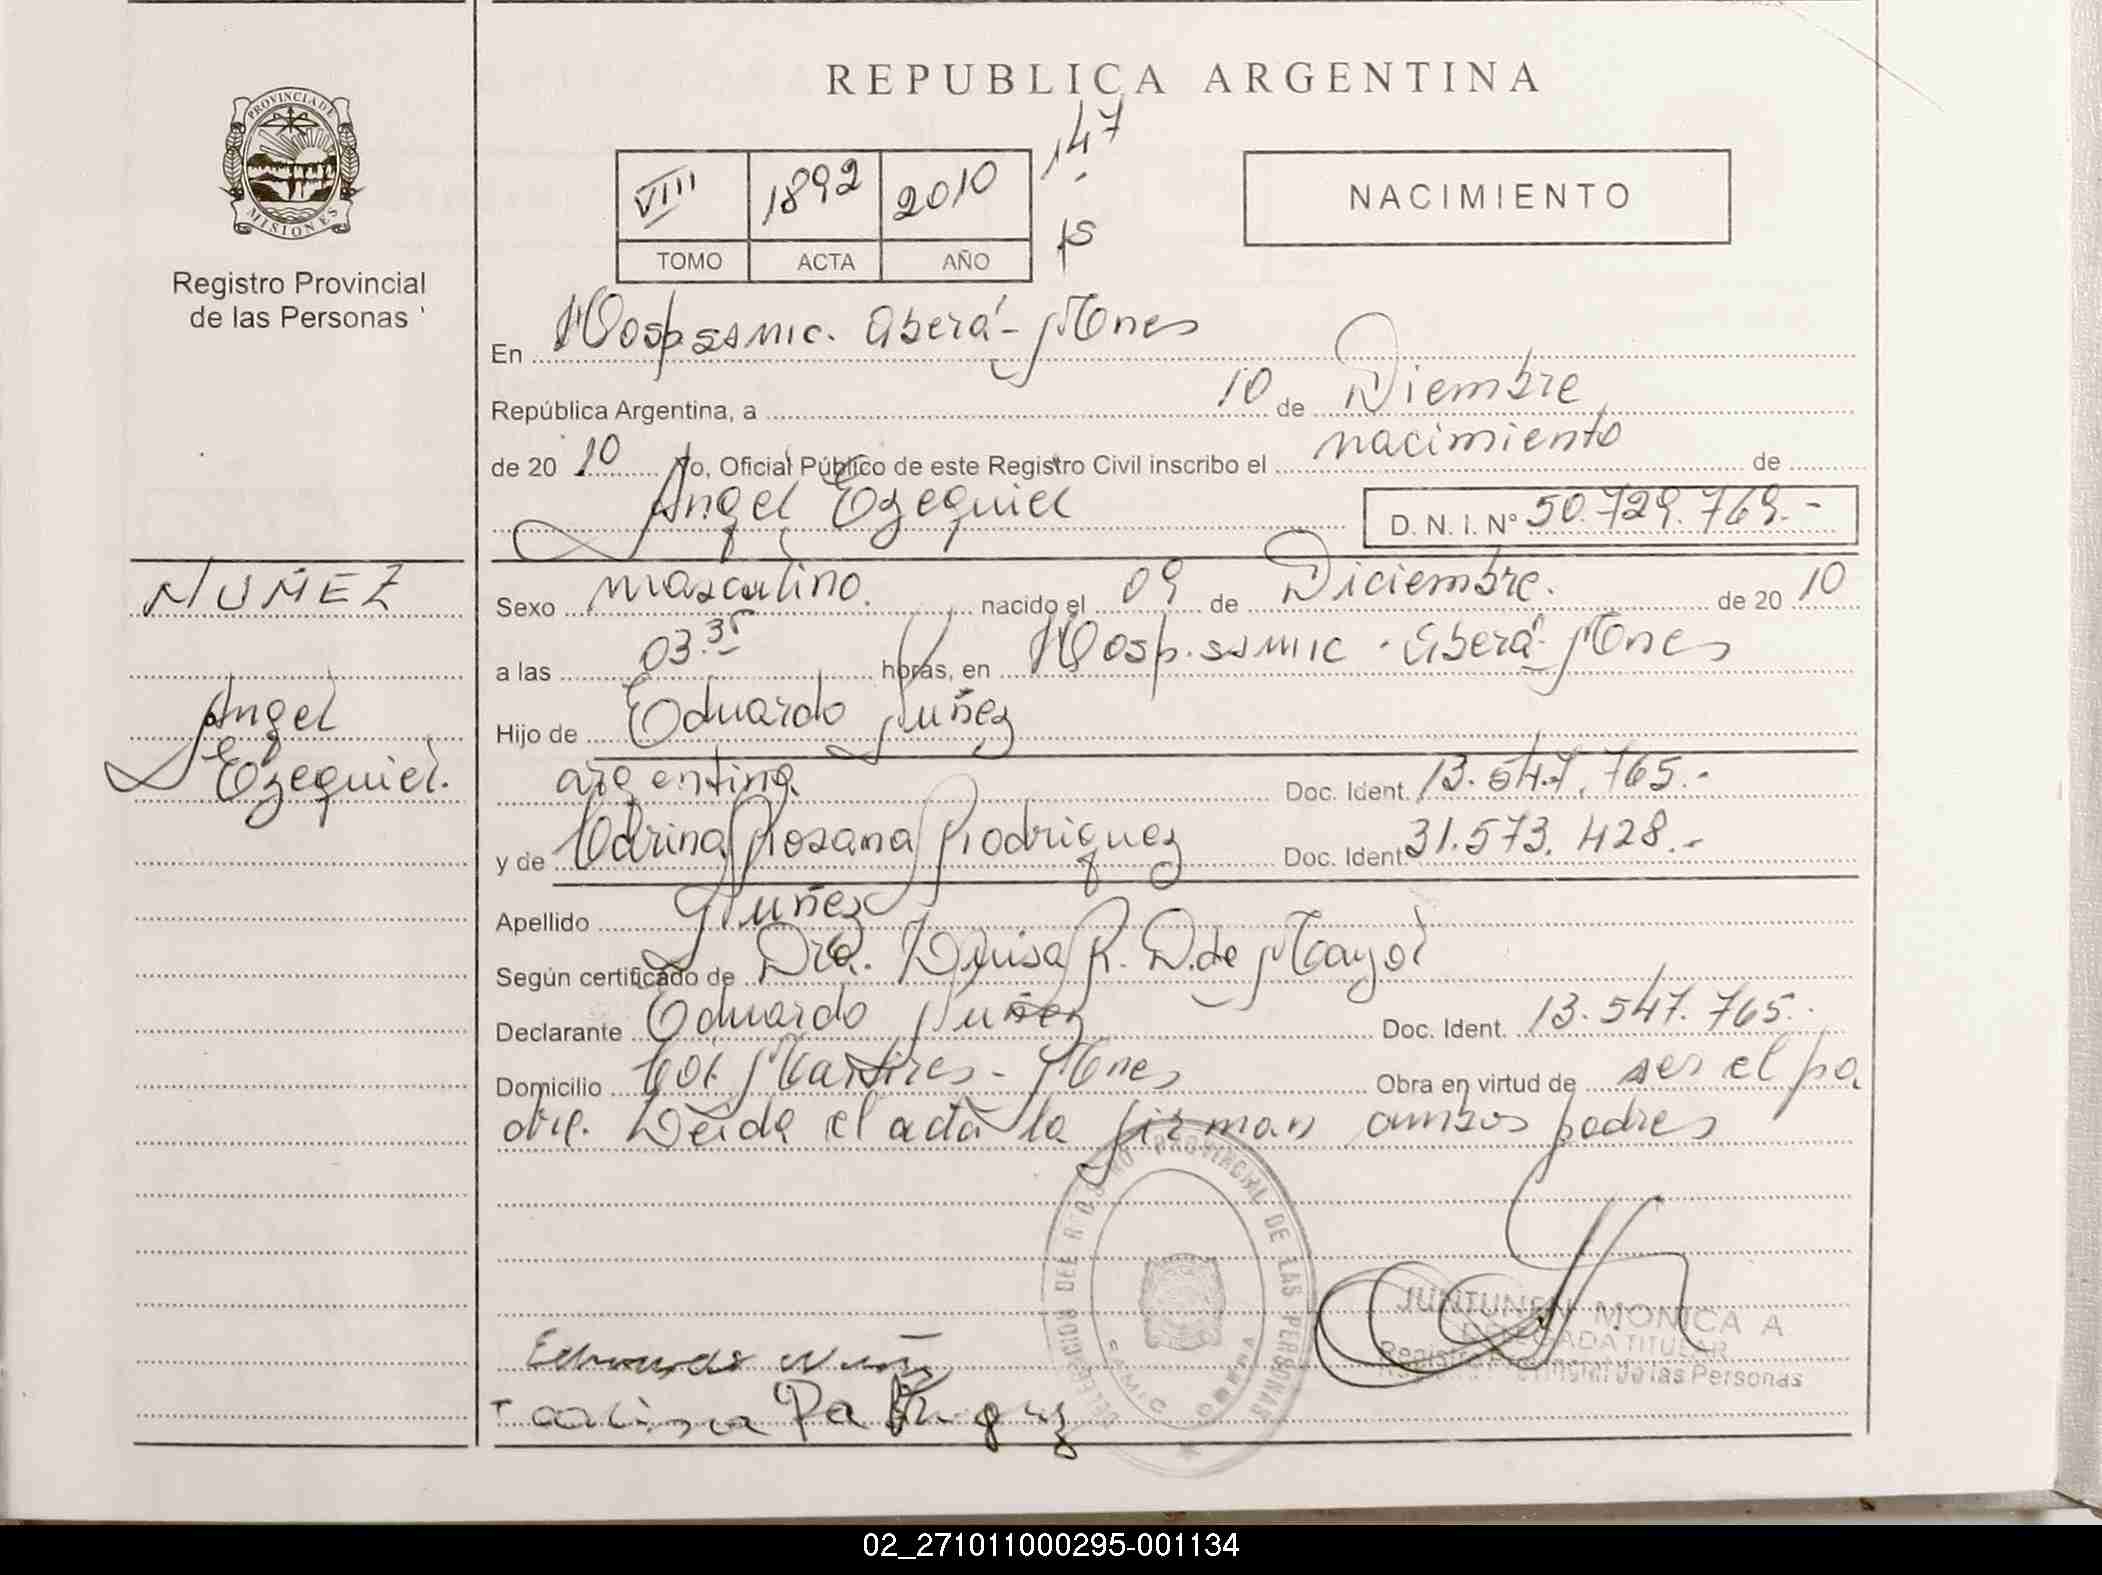 REPUBLICA ARGENTINA
PROVINCIA DE
MISIONES
Registro Provincial
de las Personas
147
15
VIII 1892 2010
TOMO ACTA AÑO
NACIMIENTO
En Hosp. SAMIC. Oberá - Mnes
República Argentina, a 10 de Diembre
de 20 10 Yo, Oficial Público de este Registro Civil inscribo el nacimiento de
Angel Ezequiel D. N. I. N° 50.729.769.-
NUÑEZ
Angel
Ezequiel.
Sexo masculino. nacido el 09 de Diciembre. de 20 10
a las 03.35 horas, en Hosp. SAMIC - Oberá - Mnes
Hijo de Eduardo Nuñez
argentina Doc. Ident. 13.547.765.-
y de Rosana Rodriguez Doc. Ident. 31.573.428.-
Apellido Nuñez
Según certificado de Dra. Luisa R. D. de Mayol
Declarante Eduardo Nuñez Doc. Ident. 13.547.765.
Domicilio Col. Martires - Mnes Obra en virtud de ser el pa
dre. Leida el acta la firman ambos padres
REGISTRO PROVINCIAL DE LAS PERSONAS
SAMIC OBERA
JUNTUNEN MONICA A.
DELEGADA TITULAR
Registro Provincial de las Personas
02_271011000295-001134